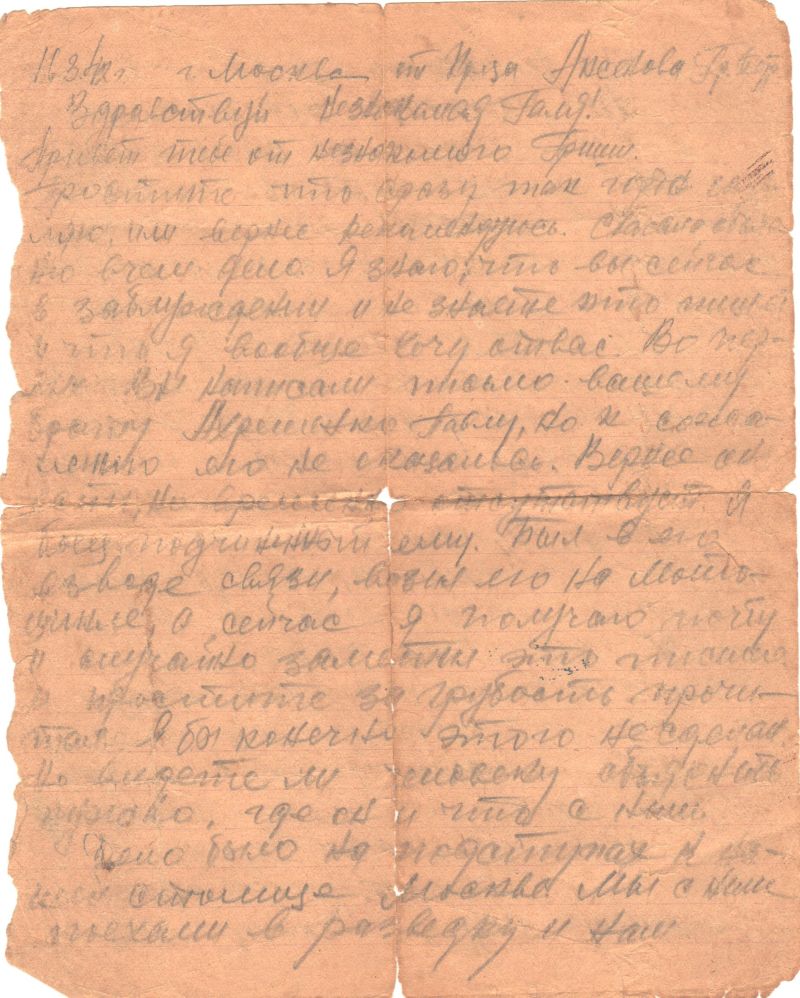 11.3.42г. г. Москва от Аксенова Гр. Петр
Здравствуй незнакомая Галя!
Привет тебе от незнакомого Гриши.
Простите что сразу так
или вернее рекомендуюсь.
Но вчем дело. Я знаю, что вы сейчас
в заблуждении и не знаете кто пишет
и что я вообще хочу отвас. Во пер-
вых Вы написали письмо вашему
брату Павлу, но к сожа-
лению его не оказалось. Вернее он
но временно отсутствует. Я
боец подчиненный ему. Был в его
взводе связи, возил его на мото-
цикле, а сейчас я получаю почту
и случайно заметил это письмо
и простите за грубость прочи-
тал. Я бы конечно этого не сделал,
но видете ли человеку объяснить
нужно, где он и что с ним.
Дело было на подступах к на-
шей столице Москва. Мы с ним
поехали в разведку и нам